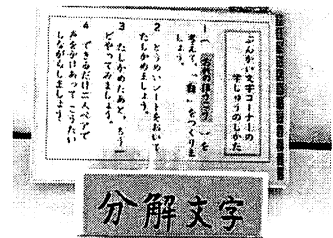 ぶんかい文字コーナーの
学しゅうのしかた
1
考えて、「　」をつくりま
しょう。
2 とうめいシートをおいて
たしかめましょう。
3 たしかめたあと、もう一
どやってみましょう。
4 できるだけ二人ペアで
声をかけあってこうたい
しながらしましょう。
分解文字